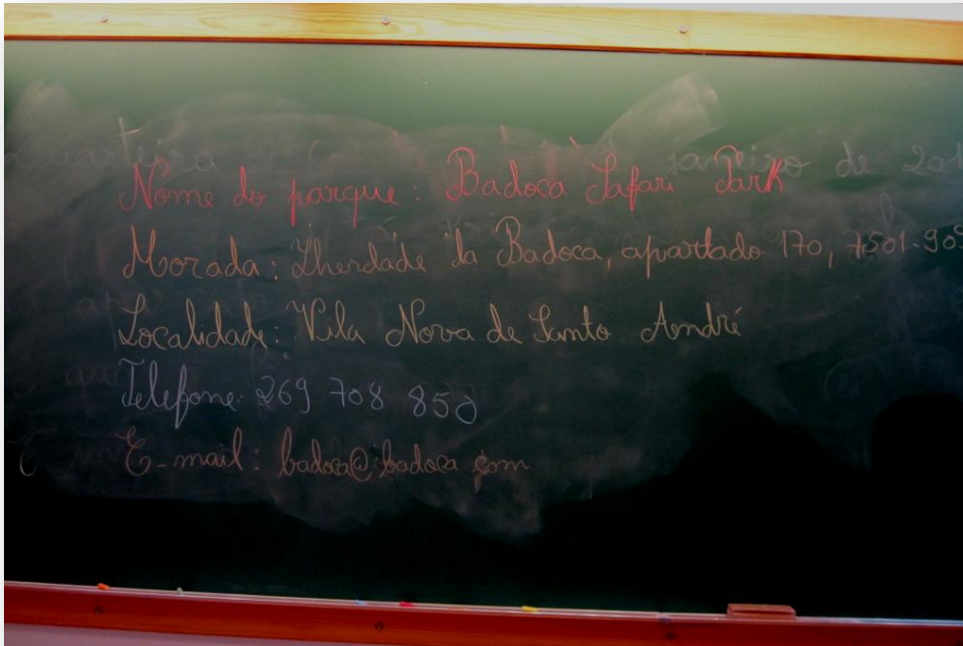 janeiro de 201
Nome do parque: Badoca Safari Park
Morada: Lherdade da Badoca, apartado 170, 7501-909
Localidade: Vila Nova de Santo André
Telefone: 269 708 850
E-mail: badoca@badoca.com